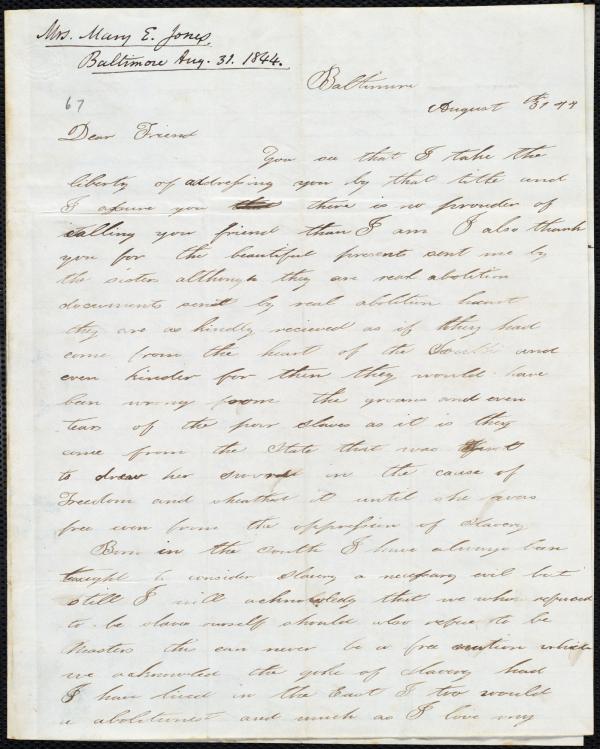 Mrs. Mary E. Jones,
Baltimore Aug. 31. 1844.
67
Baltimore
August 31 44
Dear Friend
You see that I take the
liberty of addressing you by that title and
I assure you there is no prouder of
calling you friend than I am I also thank
you for the beautiful presents sent me by
the sisters although they are real abolition
documents sent by real abolition heart
they are as kindly recieved as if they had
come from the heart of the South and
even kinder for then they would have
ben wrong from the groans and even
tears of the poor slaves as it is they
come from the State that was first
to draw her sword in the cause of
Freedom and sheathed it until she was
free even from the oppression of slavery
Born in the South I have always ben
taught to consider Slavery a necessary evil but
still I will acknowledg that we who refused
to be slaves ourself should also refuse to be
Masters this can never be a free nation while
we acknowled the yoke of slavery had
I have lived in the East I too would
a abolitionest and much as I love my